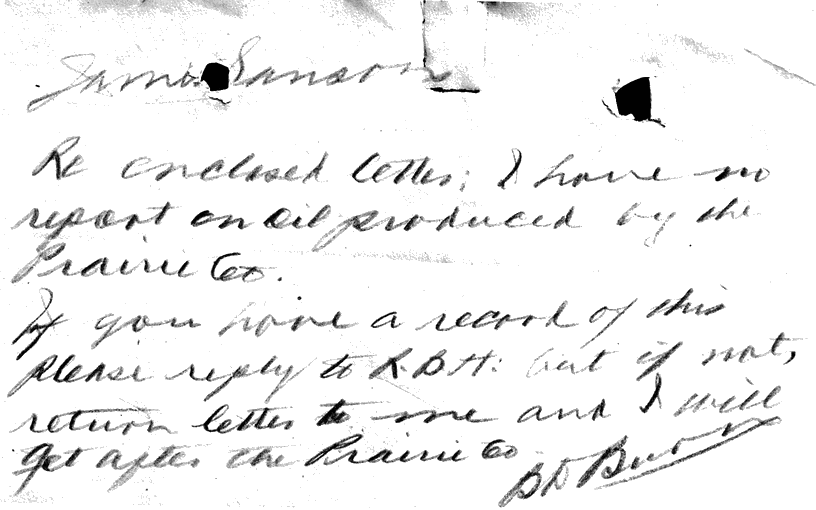 James Ransom
Re enclosed letter; I have no
report on oil produced by the
Prairie Co.
If you have a record of this
please reply to R.B.H: but if not,
return letter to me and I will
get after the Prairie Co
B D